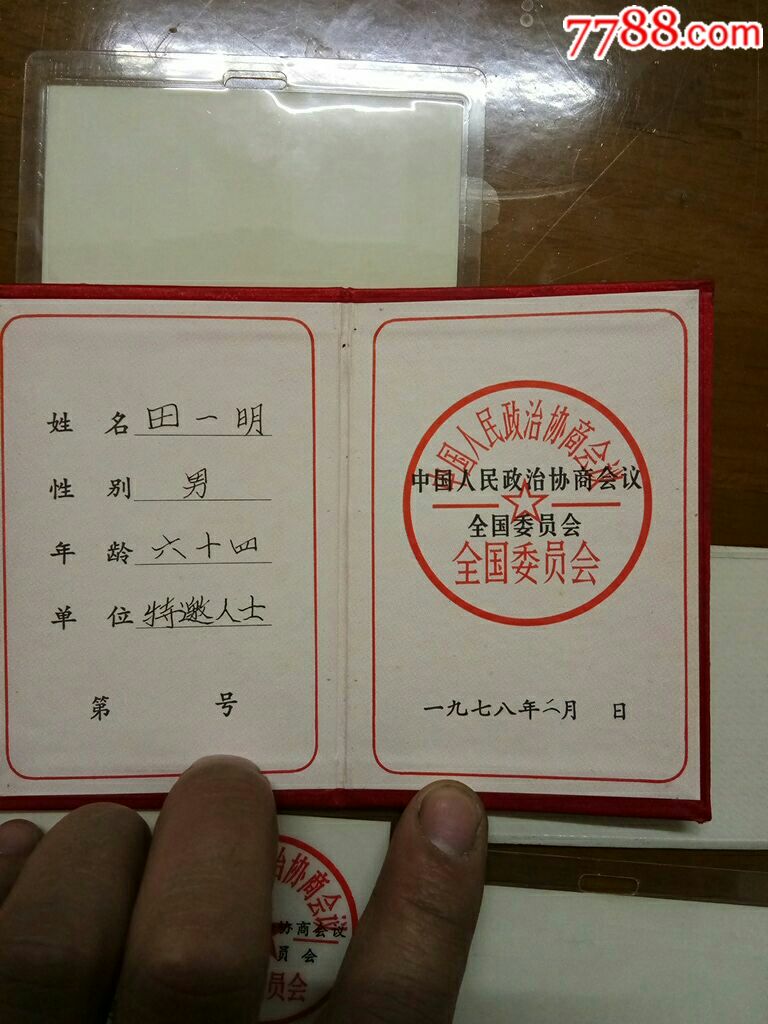 7788.com
姓 名 田一明
性 别 男
年 龄 六十四
单 位 特邀人士
第 号
中国人民政治协商会议
中国人民政治协商会议
全国委员会
全国委员会
一九七八年二月 日
治协商会议
协商会议
员 会
员会